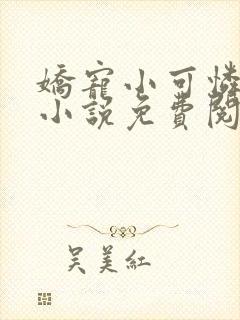 嬌寵小可憐
小說免費閱
吳美紅